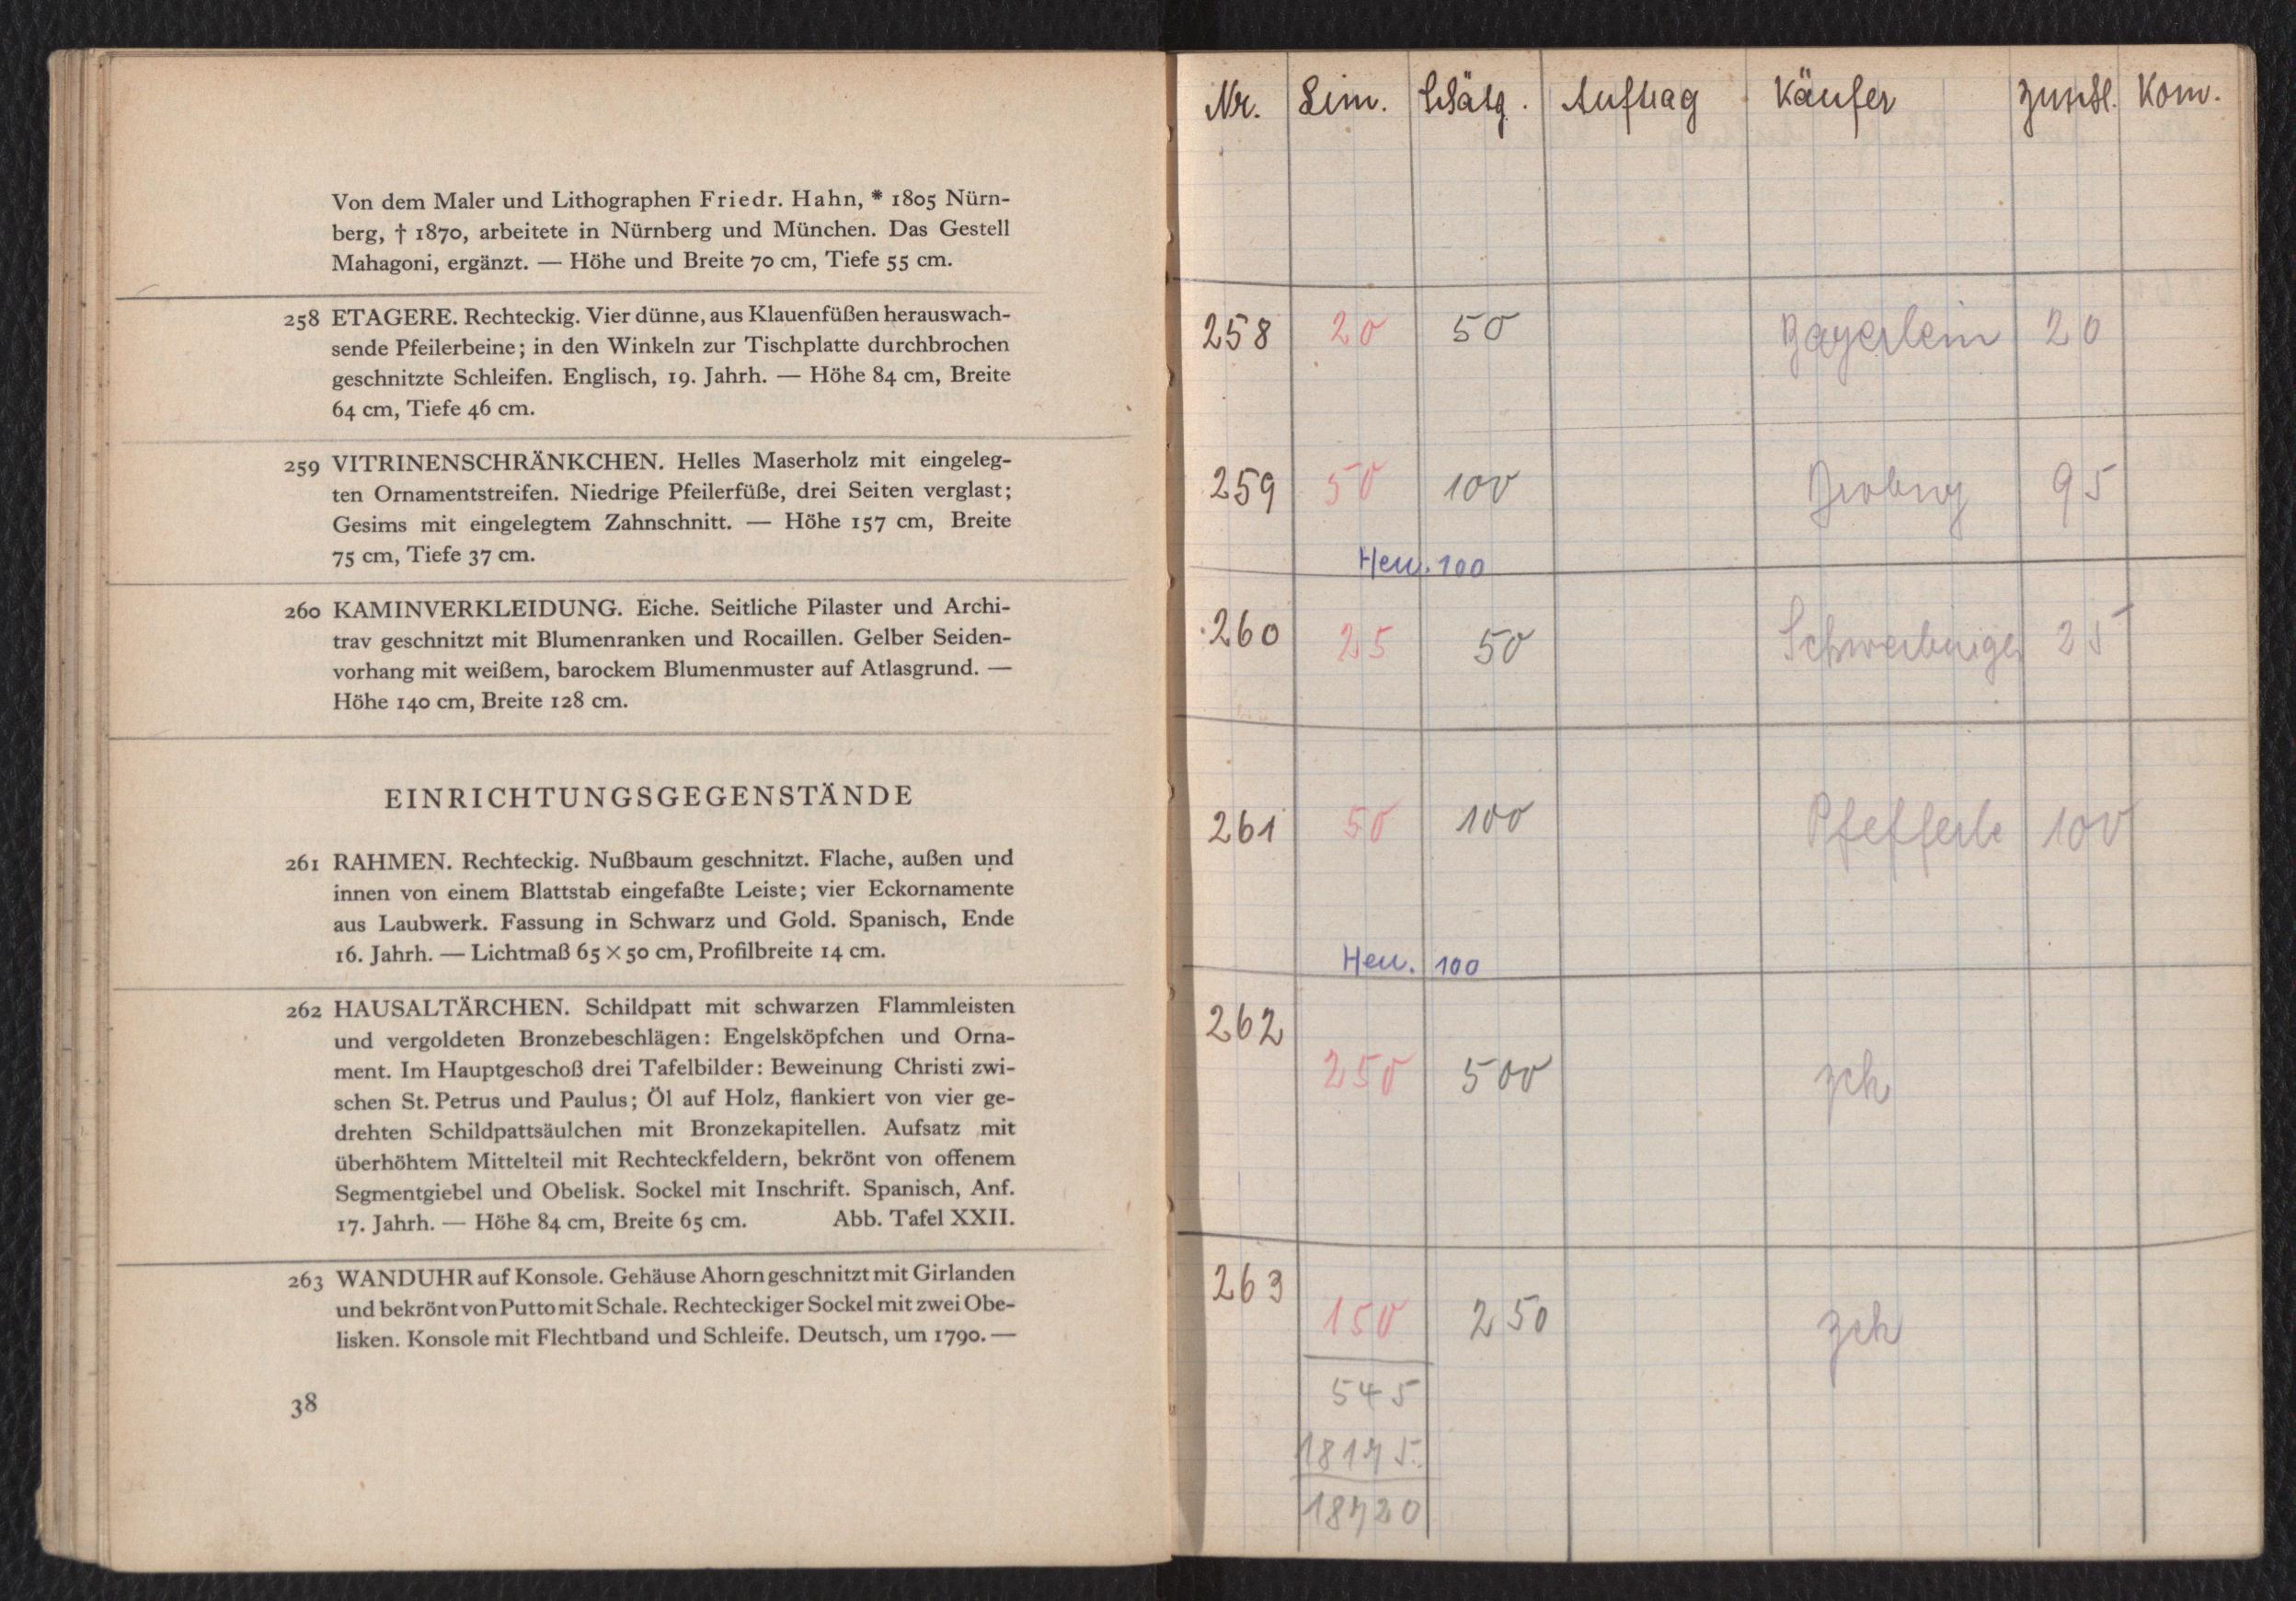 Von dem Maler und Lithographen Friedr. Hahn, * 1805 Nürn-
berg, † 1870, arbeitete in Nürnberg und München. Das Gestell
Mahagoni, ergänzt. — Höhe und Breite 70 cm, Tiefe 55 cm.
258 ETAGERE. Rechteckig. Vier dünne, aus Klauenfüßen herauswach-
sende Pfeilerbeine; in den Winkeln zur Tischplatte durchbrochen
geschnitzte Schleifen. Englisch, 19. Jahrh. — Höhe 84 cm, Breite
64 cm, Tiefe 46 cm.
259 VITRINENSCHRÄNKCHEN. Helles Maserholz mit eingeleg-
ten Ornamentstreifen. Niedrige Pfeilerfüße, drei Seiten verglast;
Gesims mit eingelegtem Zahnschnitt. — Höhe 157 cm, Breite
75 cm, Tiefe 37 cm.
260 KAMINVERKLEIDUNG. Eiche. Seitliche Pilaster und Archi-
trav geschnitzt mit Blumenranken und Rocaillen. Gelber Seiden-
vorhang mit weißem, barockem Blumenmuster auf Atlasgrund. —
Höhe 140 cm, Breite 128 cm.
EINRICHTUNGSGEGENSTÄNDE
261 RAHMEN. Rechteckig. Nußbaum geschnitzt. Flache, außen und
innen von einem Blattstab eingefaßte Leiste; vier Eckornamente
aus Laubwerk. Fassung in Schwarz und Gold. Spanisch, Ende
16. Jahrh. — Lichtmaß 65 × 50 cm, Profilbreite 14 cm.
262 HAUSALTÄRCHEN. Schildpatt mit schwarzen Flammleisten
und vergoldeten Bronzebeschlägen: Engelsköpfchen und Orna-
ment. Im Hauptgeschoß drei Tafelbilder: Beweinung Christi zwi-
schen St. Petrus und Paulus; Öl auf Holz, flankiert von vier ge-
drehten Schildpattsäulchen mit Bronzekapitellen. Aufsatz mit
überhöhtem Mittelteil mit Rechteckfeldern, bekrönt von offenem
Segmentgiebel und Obelisk. Sockel mit Inschrift. Spanisch, Anf.
17. Jahrh. — Höhe 84 cm, Breite 65 cm. Abb. Tafel XXII.
263 WANDUHR auf Konsole. Gehäuse Ahorn geschnitzt mit Girlanden
und bekrönt von Putto mit Schale. Rechteckiger Sockel mit zwei Obe-
lisken. Konsole mit Flechtband und Schleife. Deutsch, um 1790. —
38
Nr. Lim. Schätg. Auftrag Käufer Kom.
258 20 50 Bayerlein 20
259 50 100 95
100
260 25 50 25
261 50 100 Pfefferle 100
100
262 250 500 zch
263 150 250 zch
545
18175.
18720